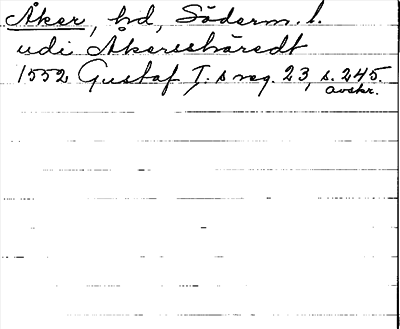 Åker, hd, Söderm. l.
udi Åkersshäredt
1552 Gustaf I:s reg. 23, s. 245.
avskr.